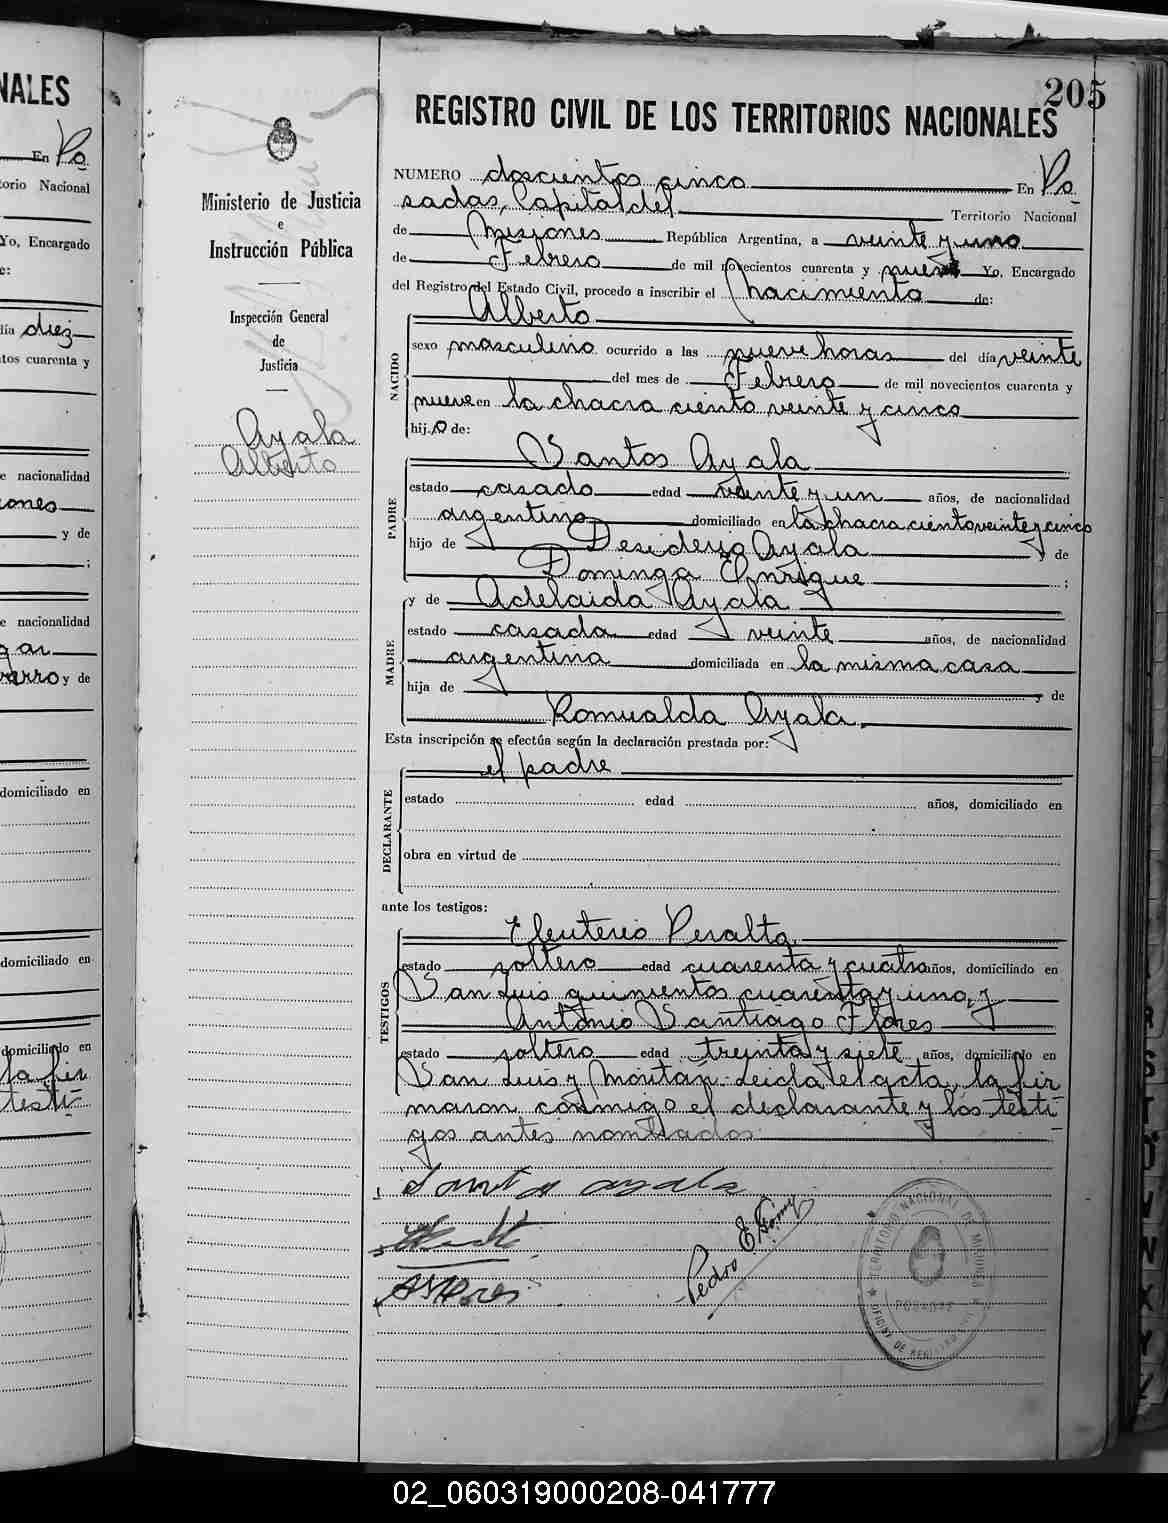 NALES
En Po
torio Nacional
Yo, Encargado
e:
día diez
tos cuarenta y
e nacionalidad
iones
y de
;
e nacionalidad
y de
domiciliado en
domiciliado en
domiciliado en
la fir
testi
205
REGISTRO CIVIL DE LOS TERRITORIOS NACIONALES
Ministerio de Justicia
e
Instrucción Pública
Inspección General
de
Justicia
Ayala
Alberto
NUMERO doscientos cinco En Po
sadas, Capital del Territorio Nacional
de Misiones República Argentina, a veinte y uno
de Febrero de mil novecientos cuarenta y nueve Yo, Encargado
del Registro del Estado Civil, procedo a inscribir el nacimiento de:
Alberto
NACIDO
sexo masculino ocurrido a las nueve horas del día veinte
del mes de Febrero de mil novecientos cuarenta y
nueve en la chacra ciento veinte y cinco
hijo de:
Santos Ayala
PADRE
estado casado edad veinte y un años, de nacionalidad
argentino domiciliado en la chacra ciento veinte y cinco
hijo de Desiderio Ayala y de
Dominga Enrique ;
y de Adelaida Ayala
MADRE
estado casada edad veinte años, de nacionalidad
argentina domiciliada en la misma casa
hija de y de
Romualda Ayala
Esta inscripción se efectúa según la declaración prestada por:
el padre
DECLARANTE
estado edad años, domiciliado en
obra en virtud de
ante los testigos:
Eleuterio Peralta
TESTIGOS
estado soltero edad cuarenta y cuatro años, domiciliado en
San Luis quinientos cuarenta y uno, y
Antonio Santiago Flores
estado soltero edad treinta y siete años, domiciliado en
San Luis y Moritán. Leida el acta, la fir
maron conmigo el declarante y los testi
gos antes nombrados
Santos ayala
Pedro E. Gómez
ASFlores
TERRITORIO NACIONAL DE MISIONES
POSADAS
OFICINA DE REGISTRO CIVIL
02_060319000208-041777